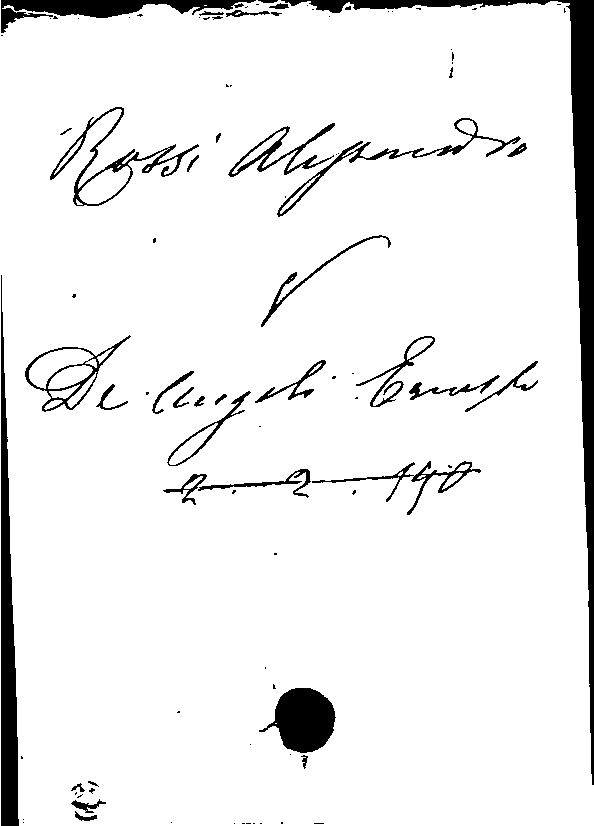 Rossi Alessandro
V
De Angeli Ernesto
2. 2. 190